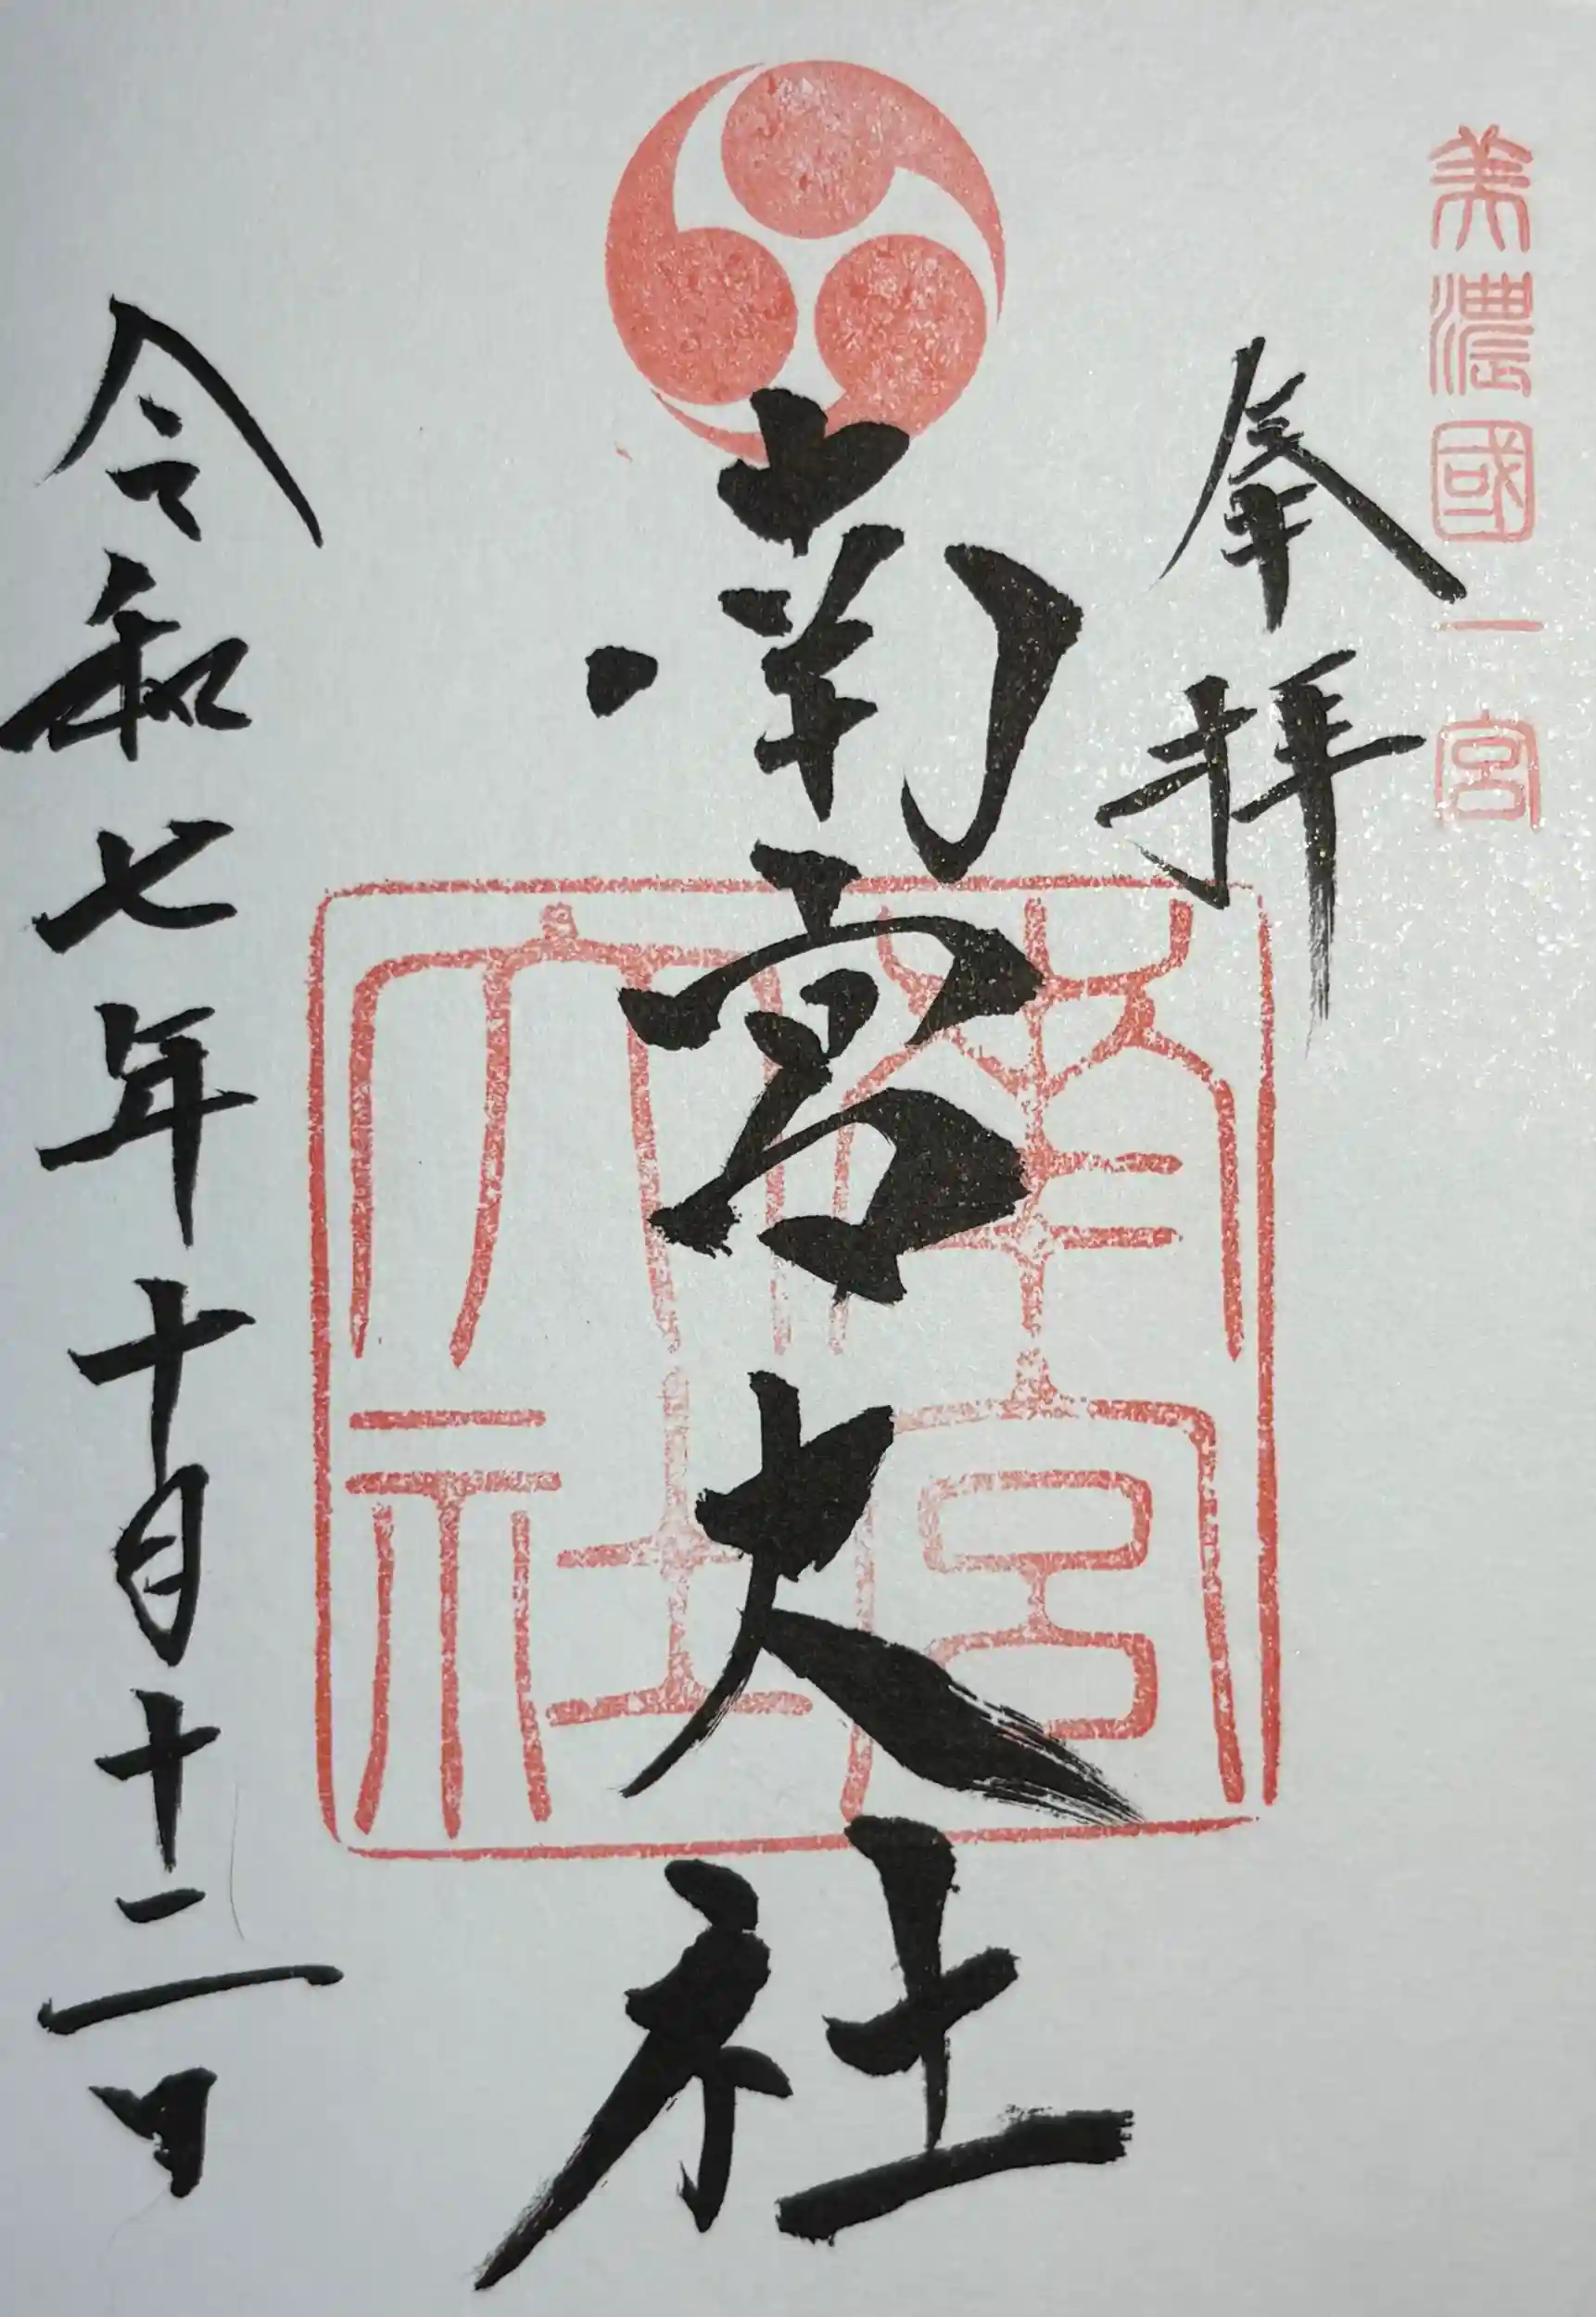 美濃國一宮
奉拝
南宮大社
南宮
大社
令和七年十月十二日